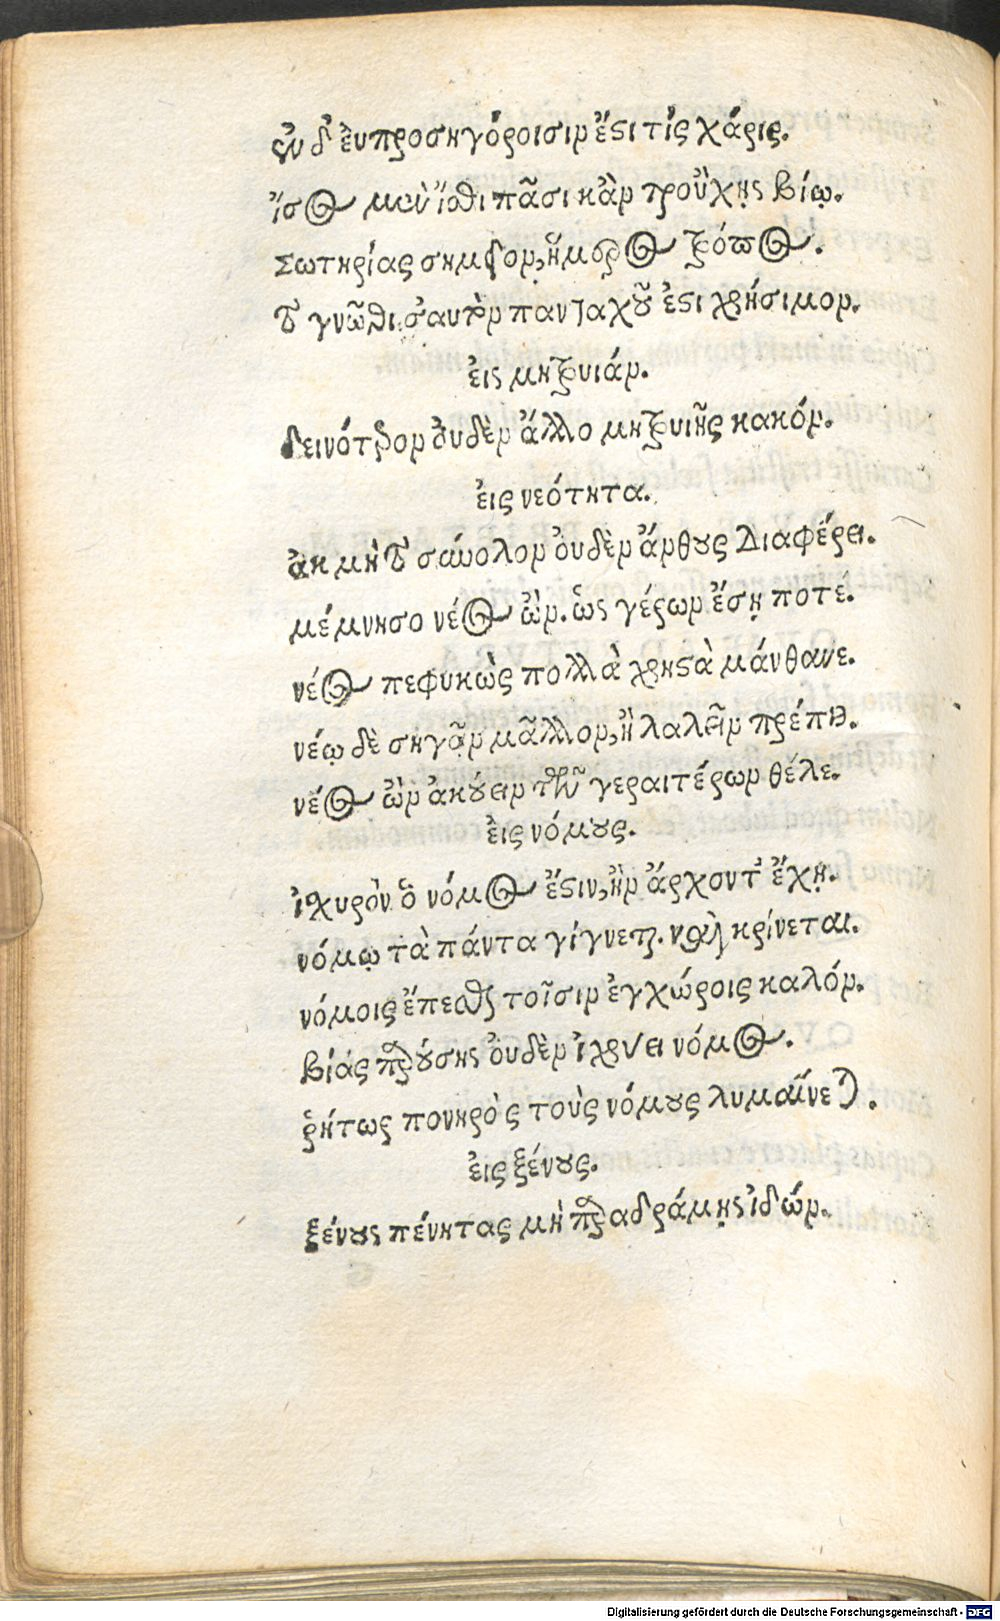 ἐν δ' ἐυπροσηγόροισιν ἔστι τίς χάρις.
ἴσος μὲν ἴσθι πᾶσι κἂν προὔχῃς βίῳ.
σωτηρίας σημεῖον, ἥμερος τρόπος.
τὸ γνῶθι σαυτὸν πανταχοῦ ἐστι χρήσιμον.
ἐις μητρυιάν.
δεινότερον ὀυδὲν ἄλλο μητρυιῆς κακόν.
ἐις νεότητα.
ἀκμὴ τὸ σύνολον ὀυδὲν ἄνθους διαφέρει.
μέμνησο νέος ὢν. ὡς γέρων ἔσῃ ποτέ.
νέος πεφυκὼς πολλὰ χρηστὰ μάνθανε.
νέῳ δὲ σηγᾷν μᾶλλον, ἢ λαλεῖν πρέπει.
νέος ὢν ἀκούειν τῶν γεραιτέρων θέλε.
ἐις νόμους.
ἰσχυρὸν ὁ νόμος ἔστιν, ἢν ἄρχοντ' ἔχῃ.
νόμῳ τὰ πάντα γίγνεται. καὶ κρίνεται.
νόμοις ἕπεσθαι τοῖσιν ἐγχώροις καλόν.
βίας παρούσης ὀυδὲν ἰσχύει νόμος.
ῥήτως πονηρὸς τοὺς νόμους λυμαίνεται.
ἐις ξένους.
ξένους πένητας μὴ παραδράμῃς ἰδών.
Digitalisierung gefördert durch die Deutsche Forschungsgemeinschaft - DFG